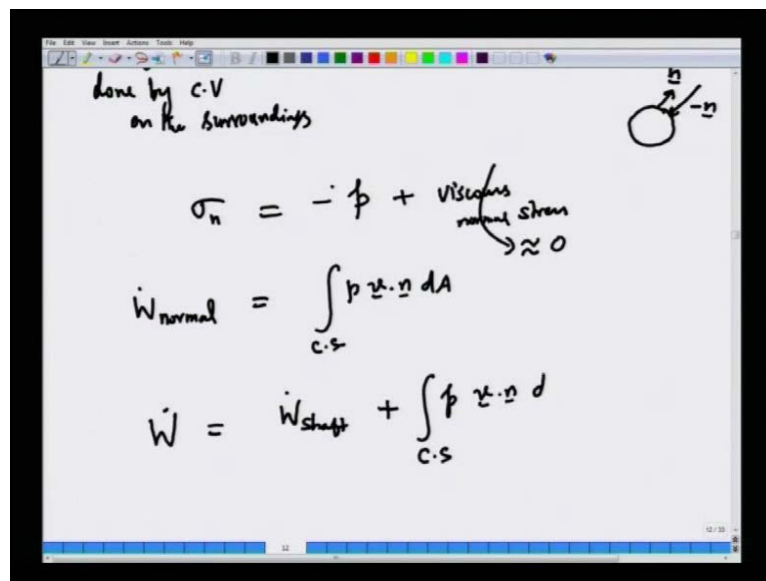 File Edit View Insert Actions Tools Help
done by C.V
on the surroundings
n
-n
σn = - p + viscous
normal stress
≈ 0
Ẇnormal = ∫ p v . n dA
C.S
Ẇ = Ẇshaft + ∫ p v . n d
C.S
12 / 33
12